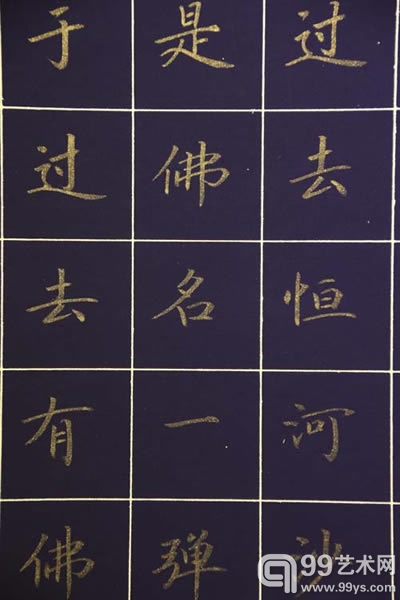 过去恒河沙
是佛名一弹
于过去有佛
99艺术网
www.99ys.com